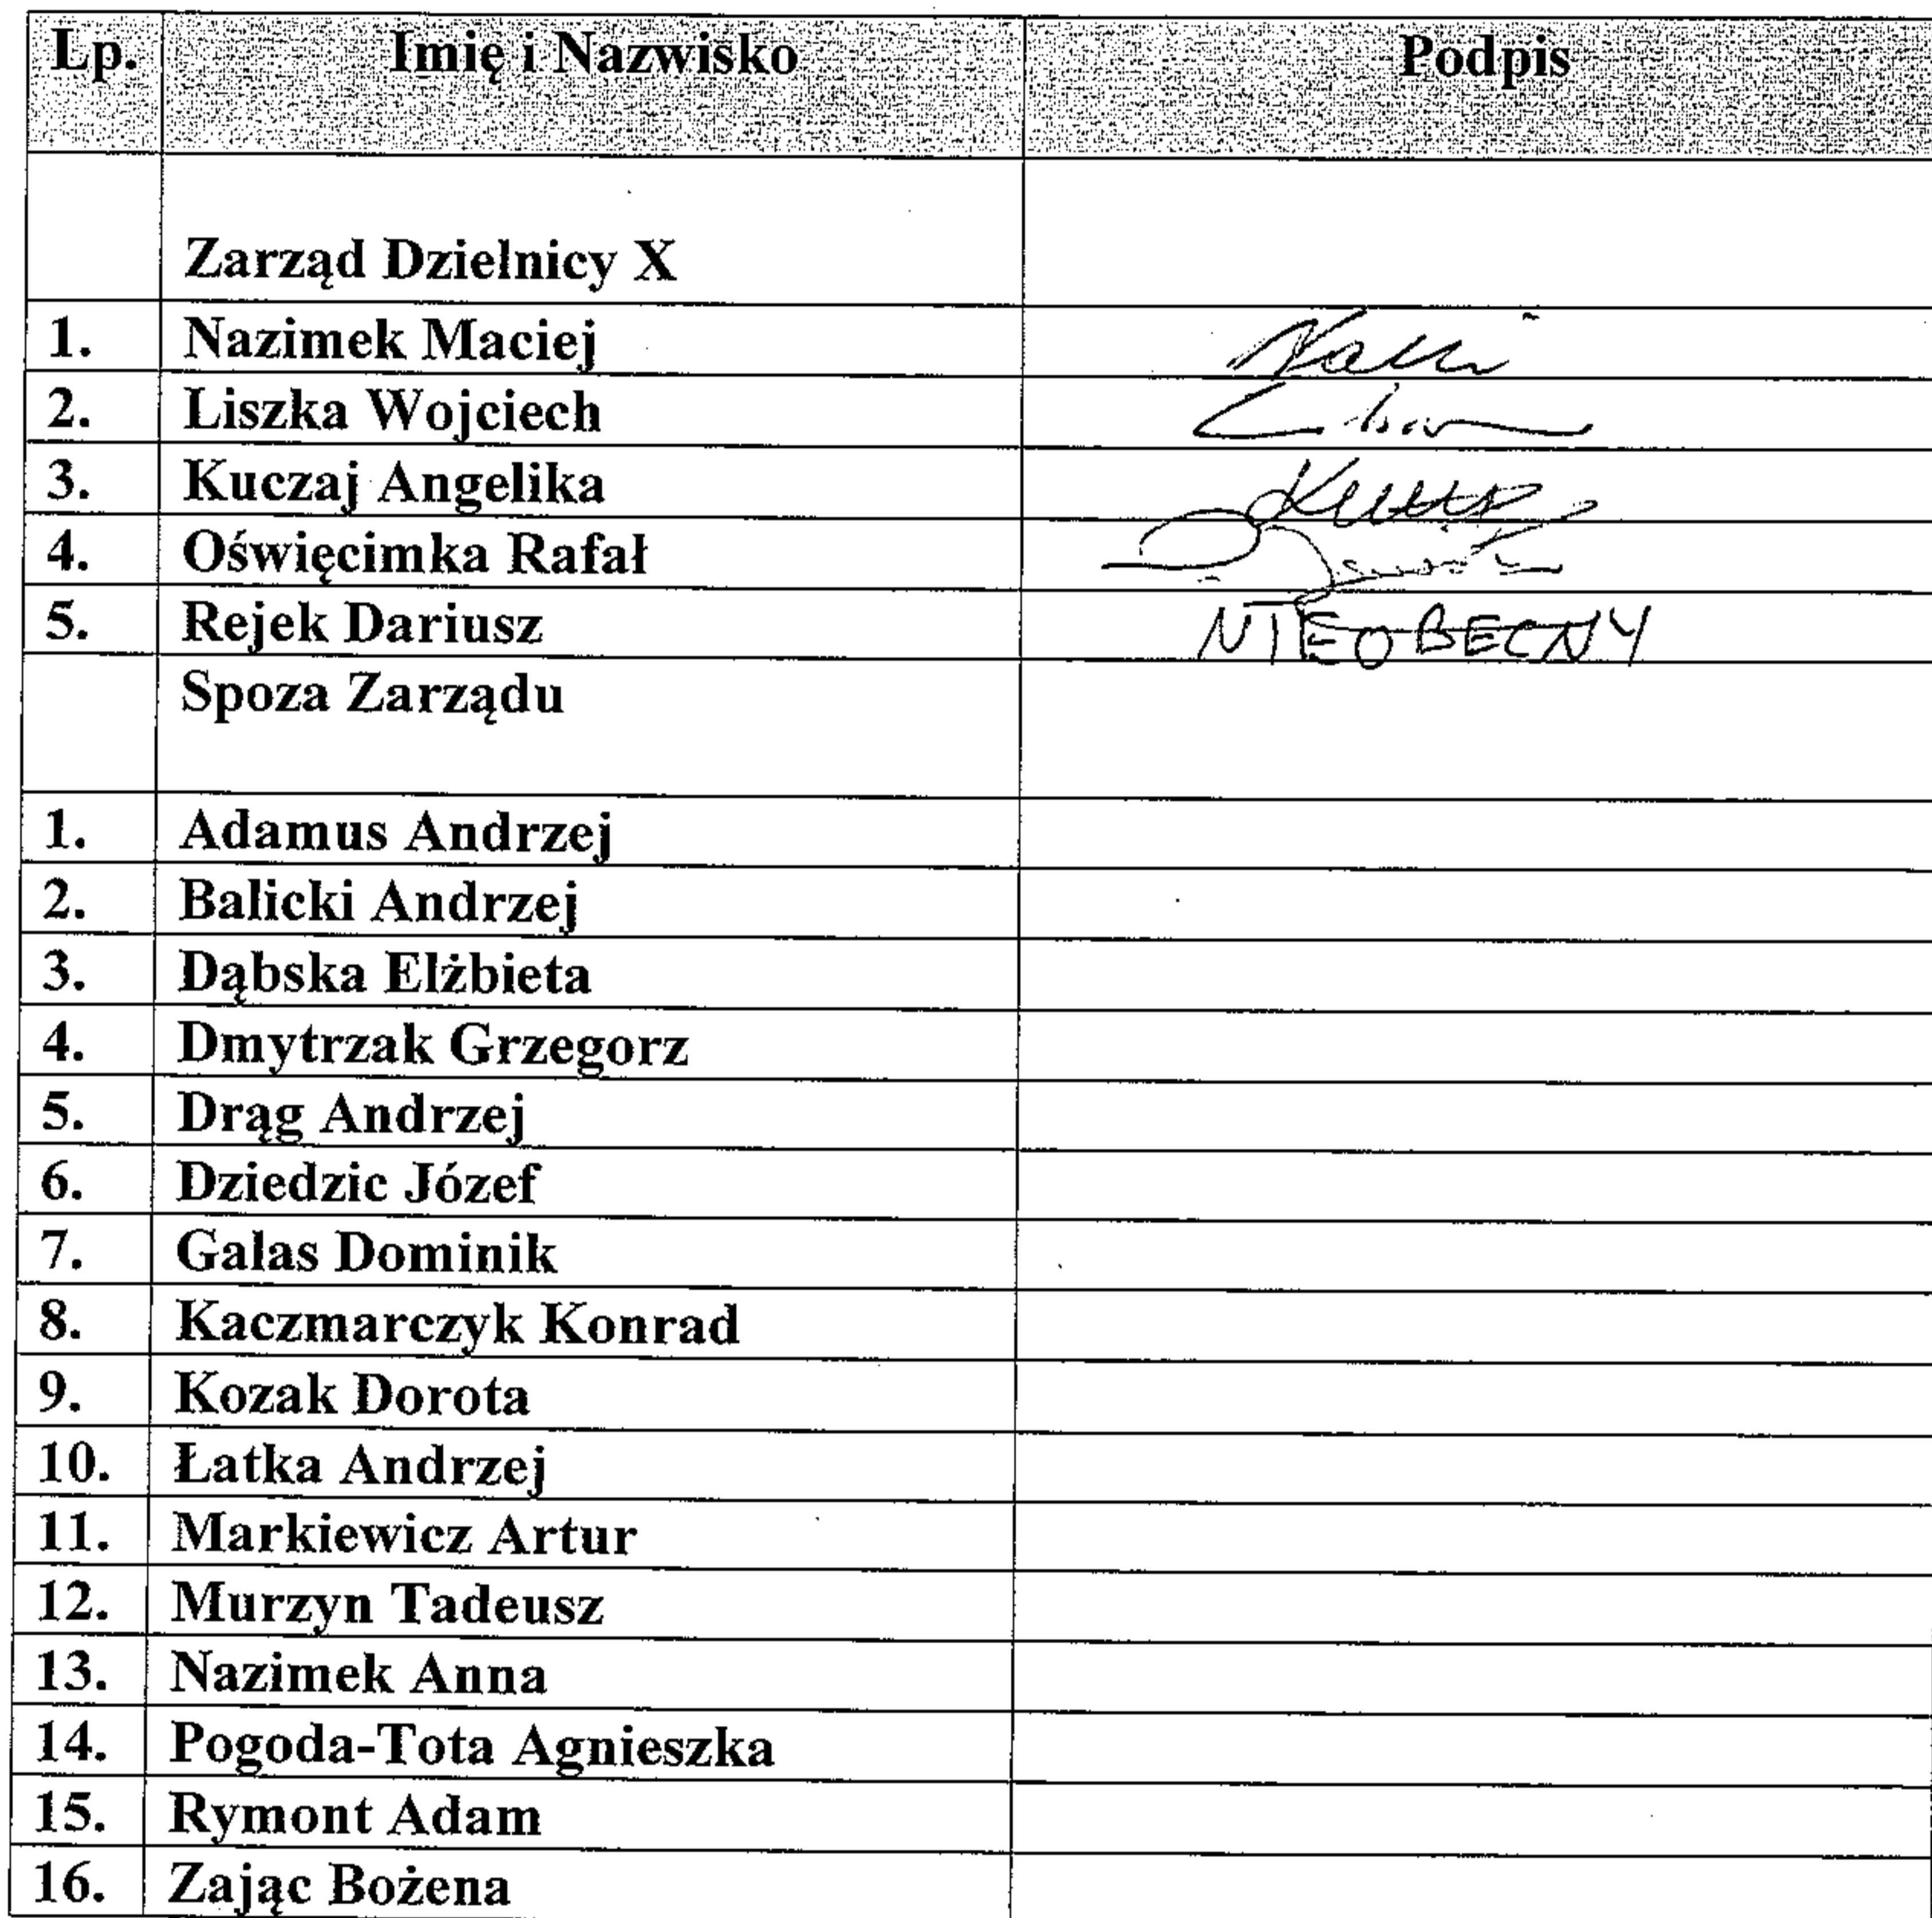 Lp. Imię i Nazwisko Podpis
Zarząd Dzielnicy X
1. Nazimek Maciej
2. Liszka Wojciech
3. Kuczaj Angelika
4. Oświęcimka Rafał
5. Rejek Dariusz NIEOBECNY
Spoza Zarządu
1. Adamus Andrzej
2. Balicki Andrzej
3. Dąbska Elżbieta
4. Dmytrzak Grzegorz
5. Drąg Andrzej
6. Dziedzic Józef
7. Galas Dominik
8. Kaczmarczyk Konrad
9. Kozak Dorota
10. Łatka Andrzej
11. Markiewicz Artur
12. Murzyn Tadeusz
13. Nazimek Anna
14. Pogoda-Tota Agnieszka
15. Rymont Adam
16. Zając Bożena